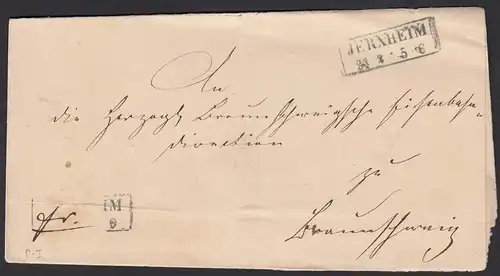 JERXHEIM
24 8 · 5-6
An
die Herzogl. Braunschweigsche Eisenbahn-
direction
zu
Braunschweig
IM
6
fr.